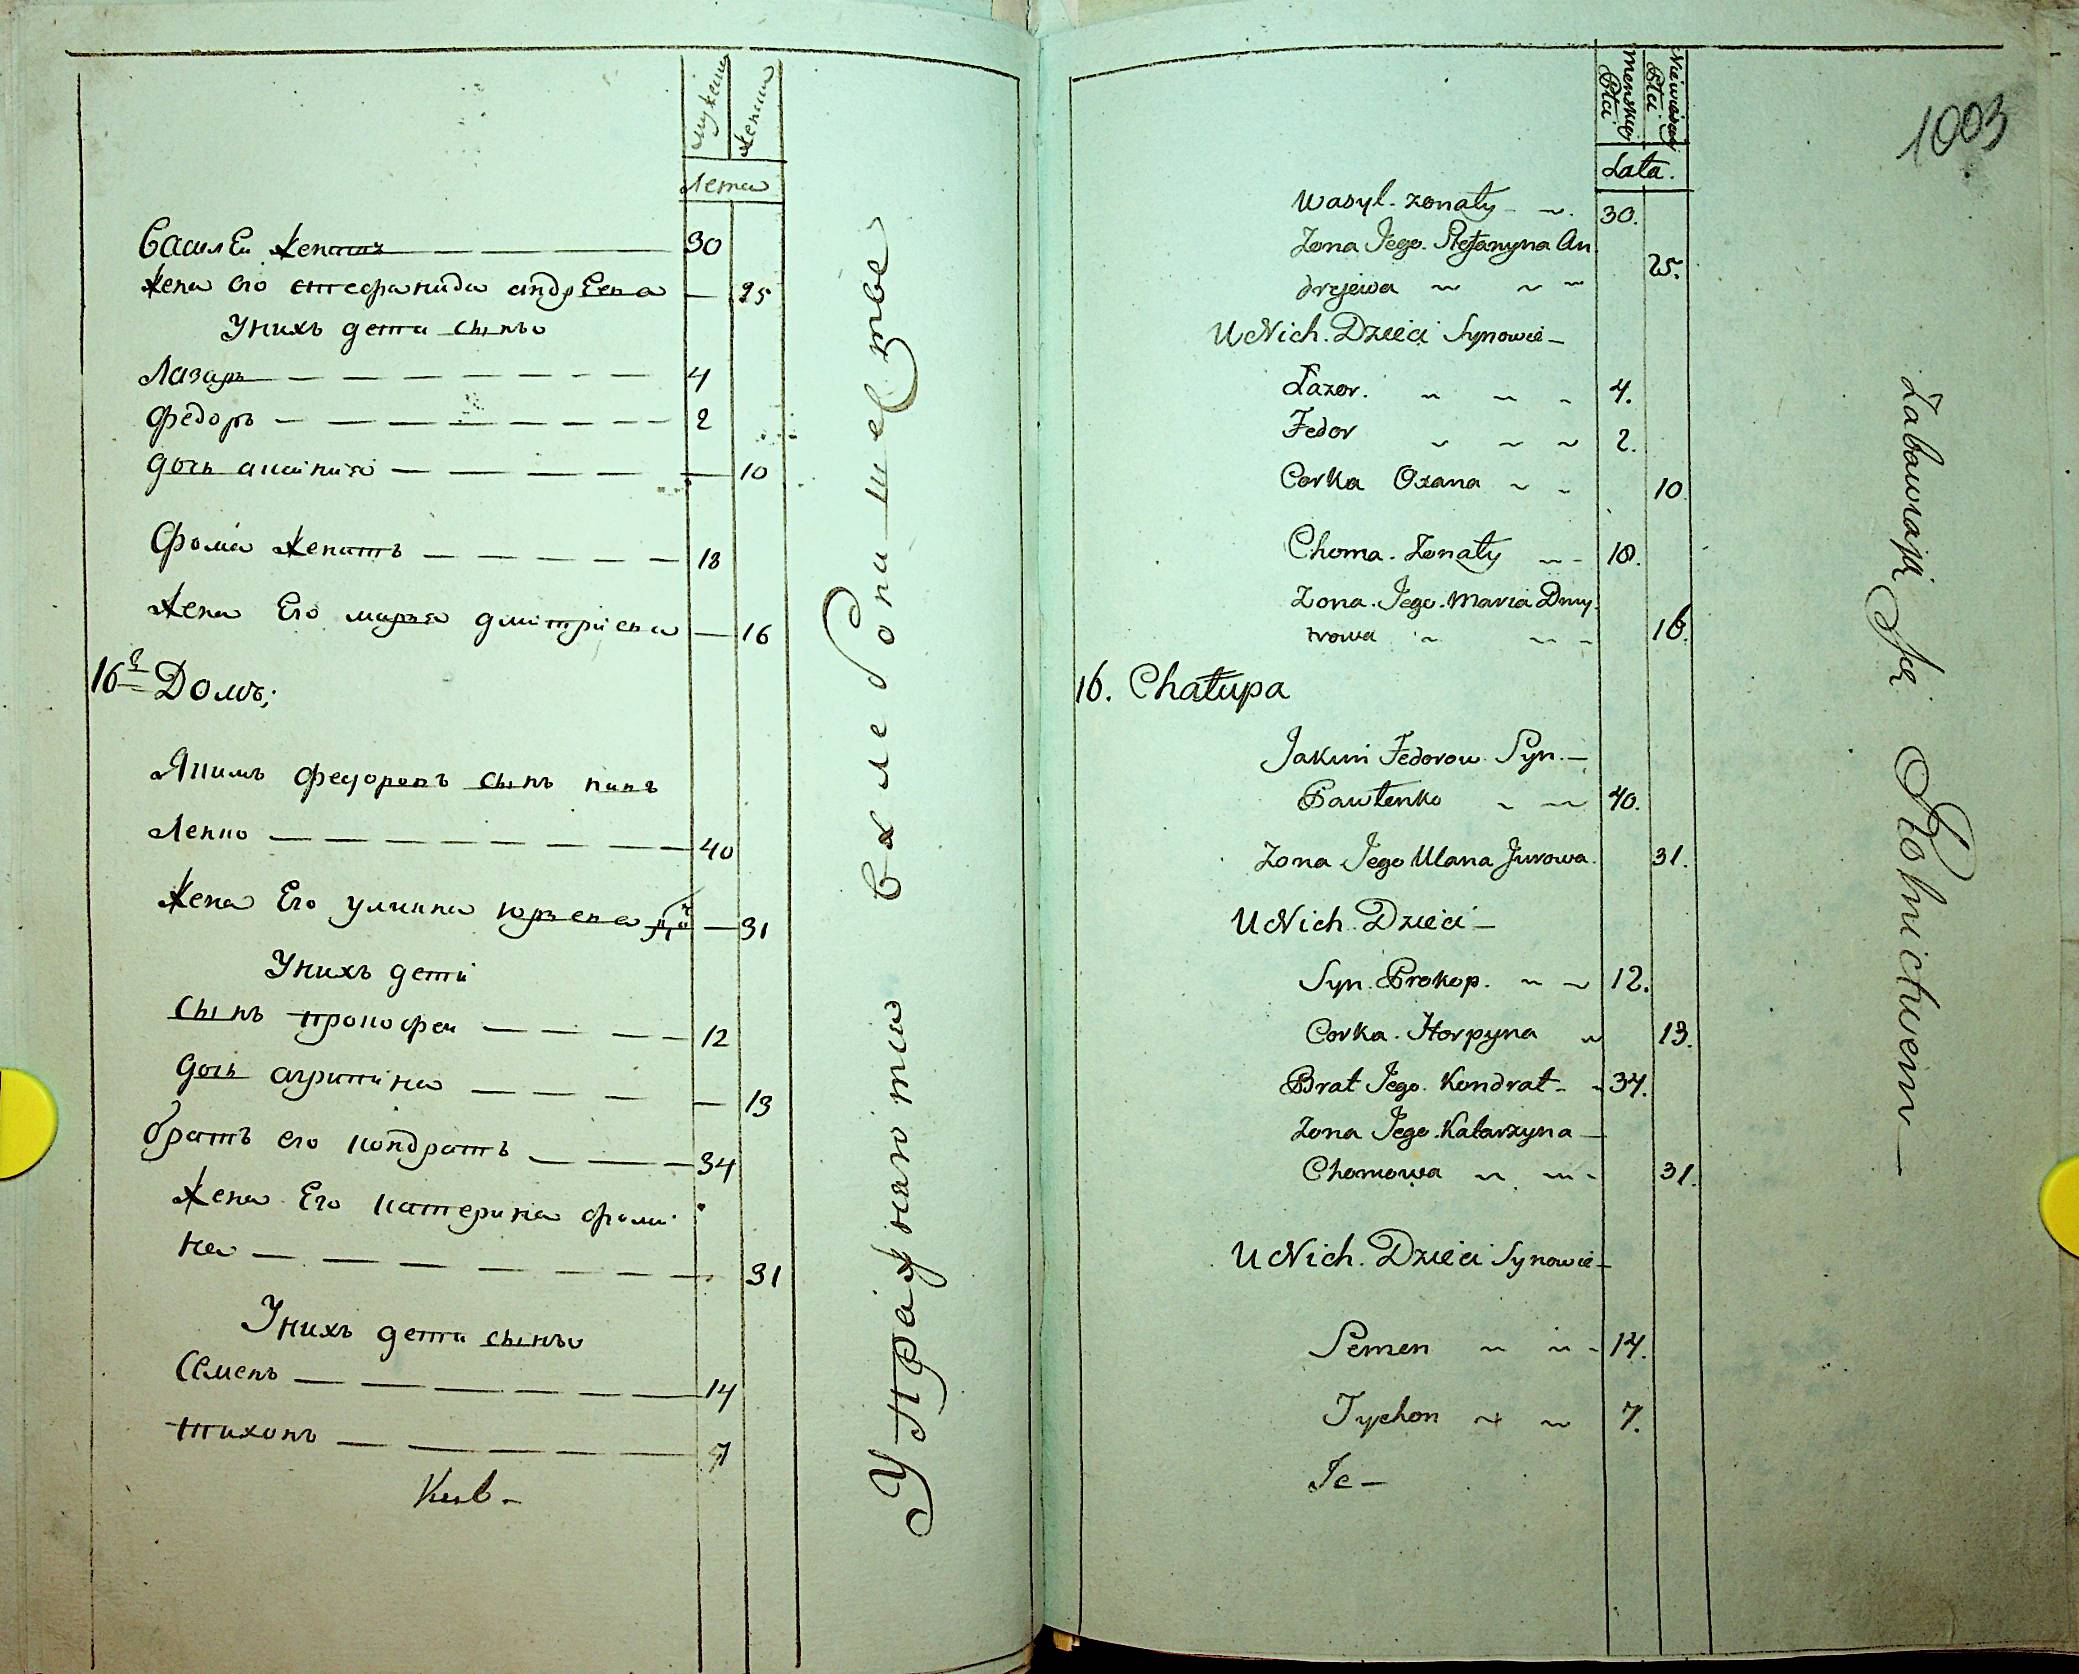 мужеска
женска
Лета
Василеи женатъ 30
жена его стефанида андрѣева 25
У нихъ дети сынъи
Лазаръ 4
федоръ 2
дочь аксинiя 10
фома женатъ 18
жена Его марья дмитриева 16
16й Домъ;
Якимъ федоровъ сынъ павъ
ленко 40
жена Его улиана юръева 31
У нихъ дети
сынъ прокофеи 12
дочь агрипина 13
братъ его кондратъ 34
жена Его катерина фоми
на 31
У нихъ дети сынъи
Семенъ 14
тихонъ 7
Упражняются в хлебопашестве
1003
Męskiey Płci
Niewieściey Płci
Lata.
Wasyl. żonaty 30.
Żona Jego. Stefanyna An
drejewa 25.
U Nich. Dzieci Synowie
Łazor. 4.
Fedor 2.
Corka Oxana 10
Choma. Żonaty 18.
Żona. Jego. Maria Dmy
trowa 16.
16. Chałupa
Jakim Fedorow. Syn.
Pawłenko 40.
Żona Jego Ulana Jurowa. 31.
U Nich. Dzieci
Syn. Prokop. 12.
Corka. Horpyna 13.
Brat Jego. Kondrat 34.
Żona Jego. Katarzyna
Chomowa 31.
U Nich. Dzieci Synowie
Semen 14.
Tychon 7.
Je
Zabawiają Się Rolnictwem